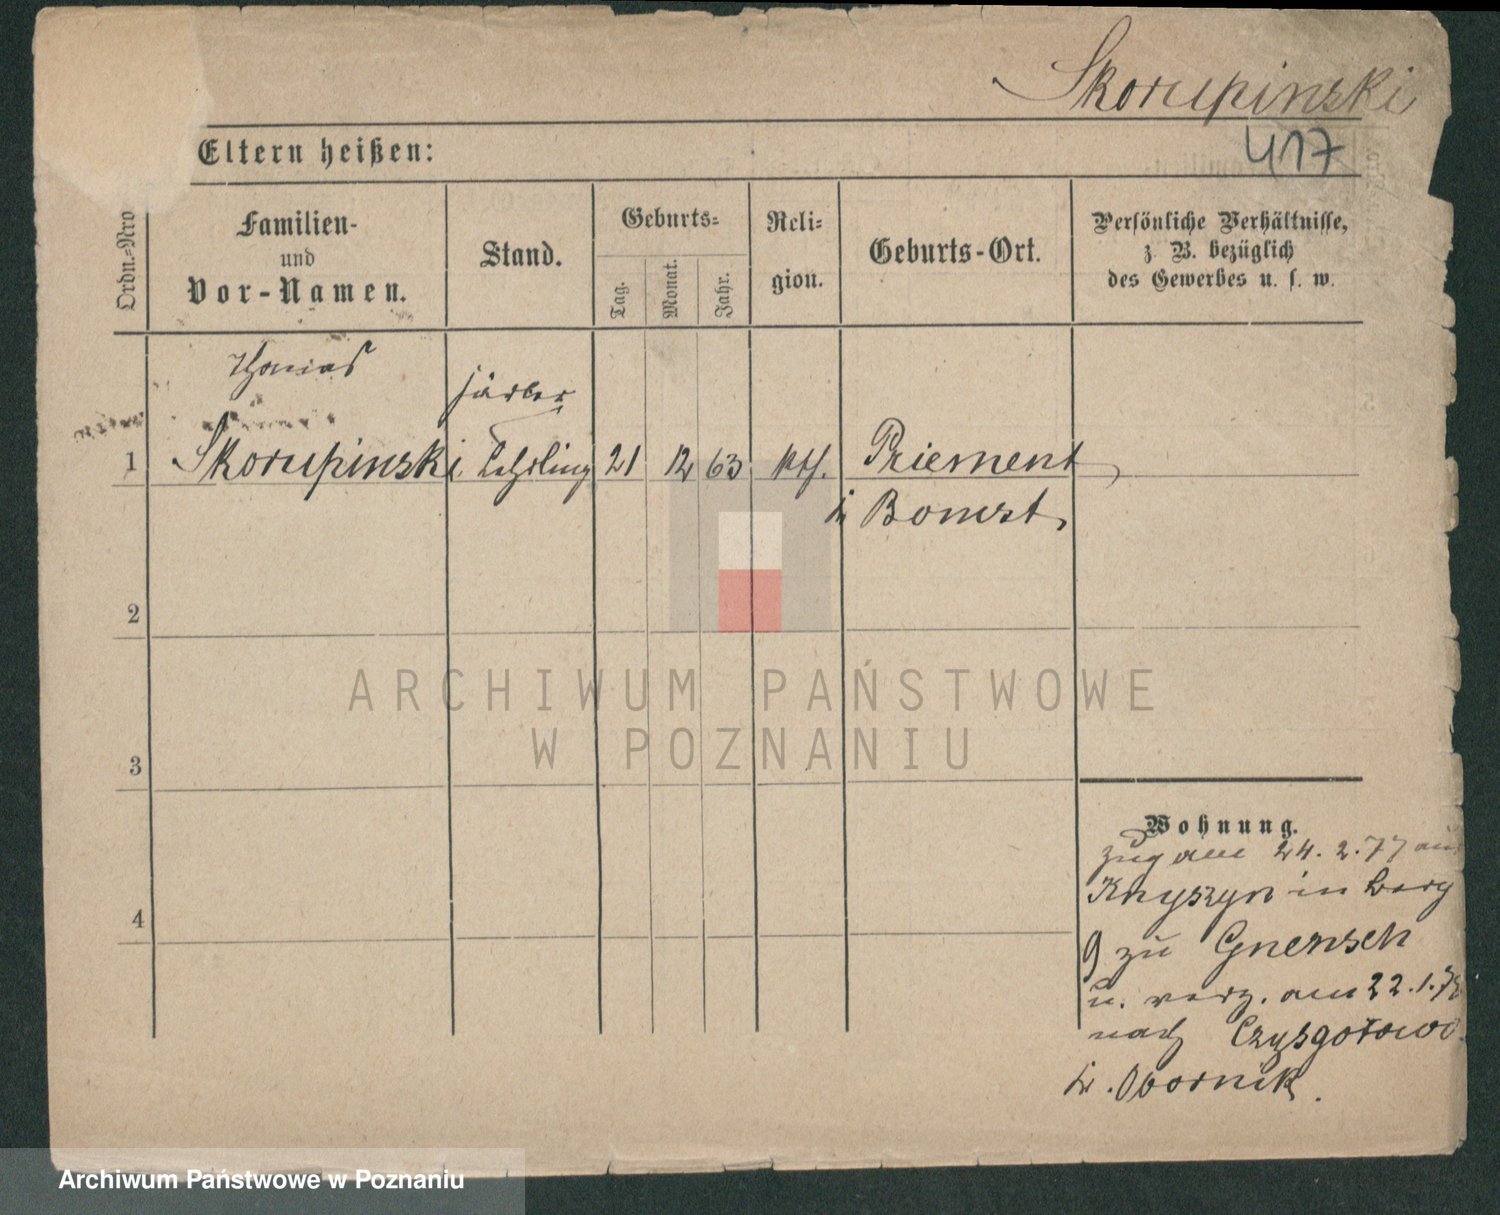 Skorupinski
417
Eltern heißen:
Ordn.-Nro
Familien-
und
Vor-Namen.
Stand.
Geburts-
Tag.
Monat.
Jahr.
Reli-
gion.
Geburts-Ort.
Persönliche Verhältnisse,
z. B. bezüglich
des Gewerbes u. s. w.
Thomas
Färber
1 Skorupinski Lehrling 21 12 63 kth. Priement
Bomst
2
3
4
Wohnung.
Zug am 24. 2. 77 aus
Knyszyn in
9 zu Gnensch
u. verz. am 22.1.78
nach Czysgotowo
Obornik.
ARCHIWUM PAŃSTWOWE
W POZNANIU
Archiwum Państwowe w Poznaniu